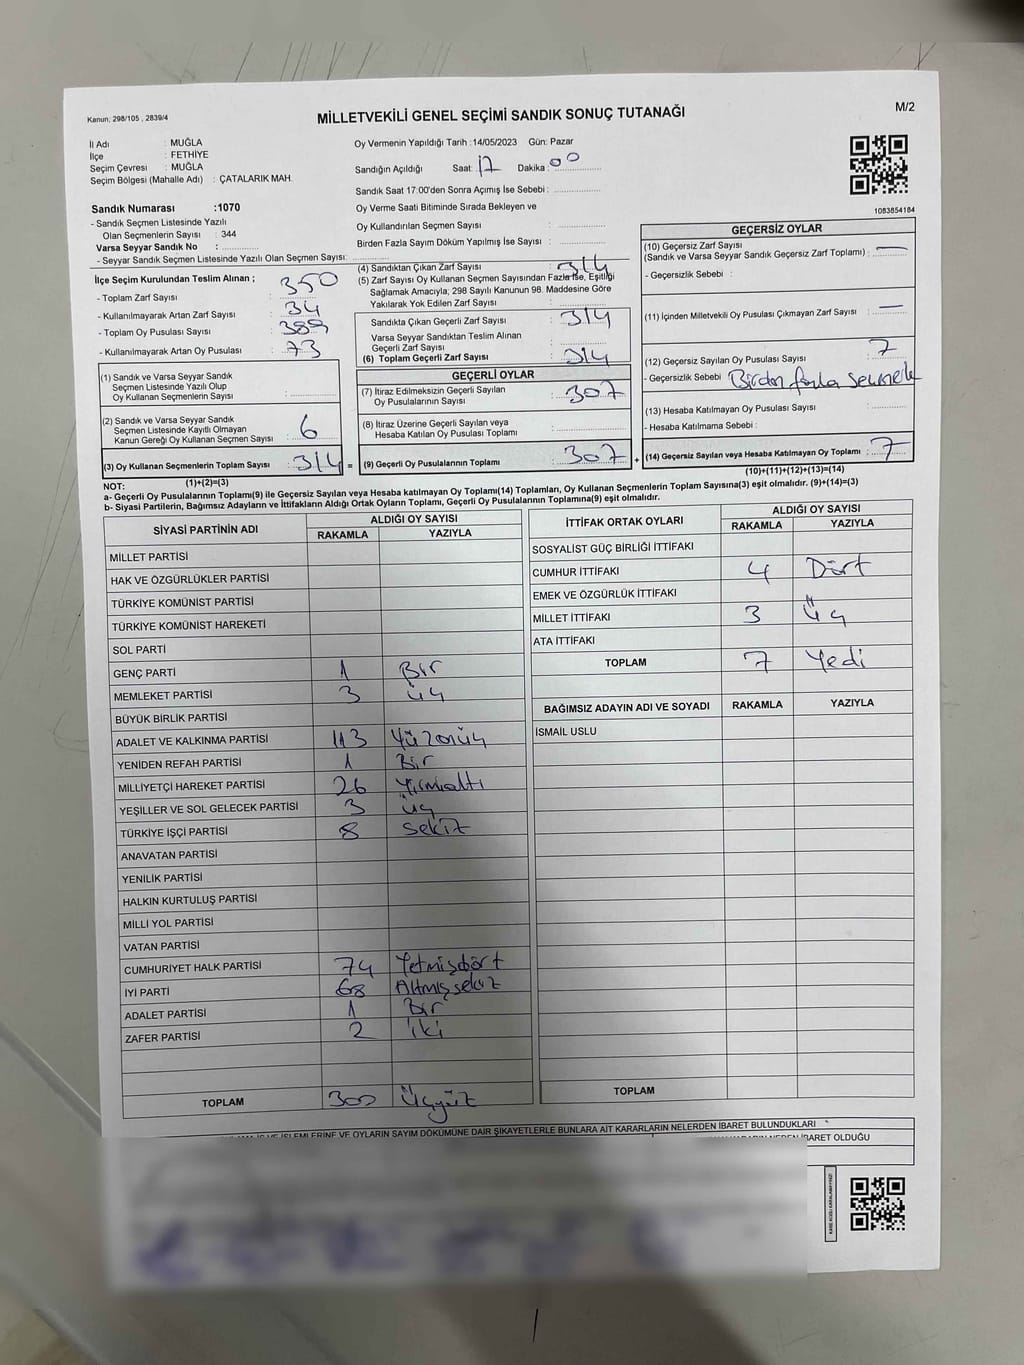 Kanun; 298/105 , 2839/4
MİLLETVEKİLİ GENEL SEÇİMİ SANDIK SONUÇ TUTANAĞI
M/2
İl Adı : MUĞLA
İlçe : FETHİYE
Seçim Çevresi : MUĞLA
Seçim Bölgesi (Mahalle Adı) : ÇATALARIK MAH.
Sandık Numarası :1070
- Sandık Seçmen Listesinde Yazılı
Olan Seçmenlerin Sayısı : 344
Varsa Seyyar Sandık No :
- Seyyar Sandık Seçmen Listesinde Yazılı Olan Seçmenlerin Sayısı:
Oy Vermenin Yapıldığı Tarih :14/05/2023 Gün: Pazar
Sandığın Açıldığı Saat: 17 Dakika: 00
Sandık Saat 17:00'den Sonra Açımış İse Sebebi :
Oy Verme Saati Bitiminde Sırada Bekleyen ve
Oy Kullandırılan Seçmen Sayısı :
Birden Fazla Sayım Döküm Yapılmış İse Sayısı :
1083854184
İlçe Seçim Kurulundan Teslim Alınan ;
- Toplam Zarf Sayısı : 350
- Kullanılmayarak Artan Zarf Sayısı : 34
- Toplam Oy Pusulası Sayısı : 389
- Kullanılmayarak Artan Oy Pusulası : 73
(1) Sandık ve Varsa Seyyar Sandık
Seçmen Listesinde Yazılı Olup
Oy Kullanan Seçmenlerin Sayısı :
(2) Sandık ve Varsa Seyyar Sandık
Seçmen Listesinde Kayıtlı Olmayan
Kanun Gereği Oy Kullanan Seçmen Sayısı : 6
(3) Oy Kullanan Seçmenlerin Toplam Sayısı : 314 =
(1)+(2)=(3)
(4) Sandıktan Çıkan Zarf Sayısı : 314
(5) Zarf Sayısı Oy Kullanan Seçmen Sayısından Fazla İse, Eşitliği
Sağlamak Amacıyla; 298 Sayılı Kanunun 98. Maddesine Göre
Yakılarak Yok Edilen Zarf Sayısı :
Sandıkta Çıkan Geçerli Zarf Sayısı : 314
Varsa Seyyar Sandıktan Teslim Alınan
Geçerli Zarf Sayısı :
(6) Toplam Geçerli Zarf Sayısı : 314
GEÇERLİ OYLAR
(7) İtiraz Edilmeksizin Geçerli Sayılan
Oy Pusulalarının Sayısı : 307
(8) İtiraz Üzerine Geçerli Sayılan veya
Hesaba Katılan Oy Pusulası Toplamı :
(9) Geçerli Oy Pusulalarının Toplamı : 307 +
GEÇERSİZ OYLAR
(10) Geçersiz Zarf Sayısı
(Sandık ve Varsa Seyyar Sandık Geçersiz Zarf Toplamı) : —
- Geçersizlik Sebebi :
(11) İçinden Milletvekili Oy Pusulası Çıkmayan Zarf Sayısı : —
(12) Geçersiz Sayılan Oy Pusulası Sayısı : 7
- Geçersizlik Sebebi : Birden fazla
(13) Hesaba Katılmayan Oy Pusulası Sayısı :
- Hesaba Katılmama Sebebi :
(14) Geçersiz Sayılan veya Hesaba Katılmayan Oy Toplamı : 7
(10)+(11)+(12)+(13)=(14)
NOT:
a- Geçerli Oy Pusulalarının Toplamı(9) ile Geçersiz Sayılan veya Hesaba katılmayan Oy Toplamı(14) Toplamları, Oy Kullanan Seçmenlerin Toplam Sayısına(3) eşit olmalıdır. (9)+(14)=(3)
b- Siyasi Partilerin, Bağımsız Adayların ve İttifakların Aldığı Ortak Oyların Toplamı, Geçerli Oy Pusulalarının Toplamına(9) eşit olmalıdır.
SİYASİ PARTİNİN ADI ALDIĞI OY SAYISI
RAKAMLA YAZIYLA
MİLLET PARTİSİ
HAK VE ÖZGÜRLÜKLER PARTİSİ
TÜRKİYE KOMÜNİST PARTİSİ
TÜRKİYE KOMÜNİST HAREKETİ
SOL PARTİ
GENÇ PARTİ 1 Bir
MEMLEKET PARTİSİ 3 üç
BÜYÜK BİRLİK PARTİSİ
ADALET VE KALKINMA PARTİSİ 113 Yüzonüç
YENİDEN REFAH PARTİSİ 1 Bir
MİLLİYETÇİ HAREKET PARTİSİ 26 Yirmialtı
YEŞİLLER VE SOL GELECEK PARTİSİ 3 üç
TÜRKİYE İŞÇİ PARTİSİ 8 sekiz
ANAVATAN PARTİSİ
YENİLİK PARTİSİ
HALKIN KURTULUŞ PARTİSİ
MİLLİ YOL PARTİSİ
VATAN PARTİSİ
CUMHURİYET HALK PARTİSİ 74 Yetmişdört
İYİ PARTİ 68 Altmışsekiz
ADALET PARTİSİ 1 Bir
ZAFER PARTİSİ 2 iki
TOPLAM 300 Üçyüz
İTTİFAK ORTAK OYLARI ALDIĞI OY SAYISI
RAKAMLA YAZIYLA
SOSYALİST GÜÇ BİRLİĞİ İTTİFAKI
CUMHUR İTTİFAKI 4 Dört
EMEK VE ÖZGÜRLÜK İTTİFAKI
MİLLET İTTİFAKI 3 üç
ATA İTTİFAKI
TOPLAM 7 Yedi
BAĞIMSIZ ADAYIN ADI VE SOYADI RAKAMLA YAZIYLA
İSMAİL USLU
TOPLAM
İŞLEMLERİNE VE OYLARIN SAYIM DÖKÜMÜNE DAİR ŞİKAYETLERLE BUNLARA AİT KARARLARIN NELERDEN İBARET BULUNDUKLARI
İBARET OLDUĞU